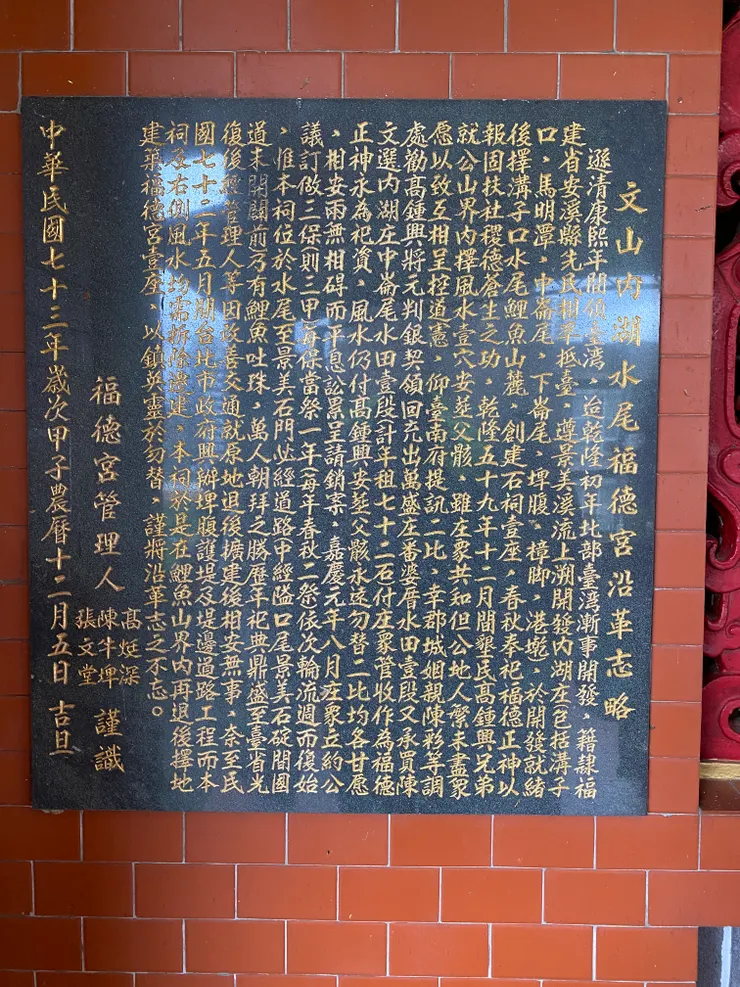 文山內湖水尾福德宮沿革志略
遜清康熙年間領臺灣，迨乾隆初年北部臺灣漸事開發，籍隸福
建省安溪縣先民相率抵臺，遵景美溪流上溯開發內湖庄（包括溝子
口，馬明潭，中崙尾，下崙尾，埤腹，樟脚，港墘，於開發就緒
後擇溝子口水尾鯉魚山麓，創建石祠壹座，春秋奉祀福德正神以
報固扶社稷德蒼生之功，乾隆五十九年十二月間墾民高鍾興兄弟
就公山界內擇風水壹穴安葬父骸，雖庄衆共和但公地人繁未盡衆
愿以致互相呈控道憲，仰臺南府提訊二比，幸郡城姐親陳彩等調
處勸高鍾興將元判銀契領回充出萬盛庄番婆厝水田壹段又承買陳
文選內湖庄中崙尾水田壹段（計年租七十二石付庄衆管收作為福德
正神永為祀資，風水仍付高鍾興安葬父骸永遠勿替二比均各甘愿
，相安兩無相碍而平息訟累呈請銷案，嘉慶元年八月庄衆立約公
議訂做三保則三甲（每保當祭一年（每年春秋二祭依次輪流週而復始
，惟本祠位於水尾至景美石門必經道路（中經隘口尾景美石碇間國
道未開闢前乃有鯉魚吐珠，萬人朝拜之勝歷年祀典鼎盛至臺省光
復後經管理人等因改善交通就原地退後擴建後相安無事，奈至民
國七十二年五月間台北市政府興辦埤腹護堤及堤邊道路工程而本
祠及右側風水均需拆除遷建，本祠於是在鯉魚山界內再退後擇地
建築福德宮壹座，以鎮英靈於勿替，謹將沿革志之不忘。
福德宮管理人 高烶深 陳牛埤 張文堂 謹識
中華民國七十三年歲次甲子農曆十二月五日 吉旦